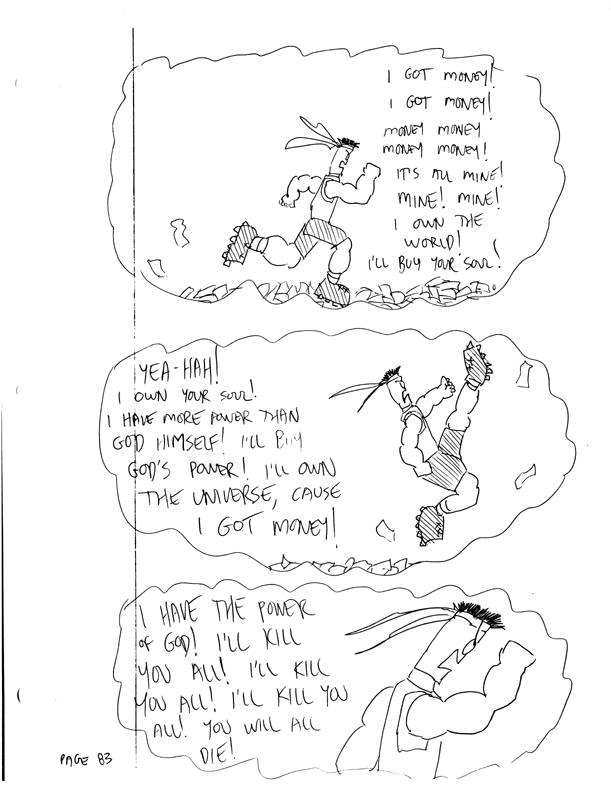 I GOT MONEY!
I GOT MONEY!
MONEY MONEY
MONEY MONEY!
IT'S ALL MINE!
MINE! MINE!
I OWN THE
WORLD!
I'LL BUY YOUR SOUL!
YEA-HAH!
I OWN YOUR SOUL!
I HAVE MORE POWER THAN
GOD HIMSELF! I'LL BUY
GOD'S POWER! I'LL OWN
THE UNIVERSE, CAUSE
I GOT MONEY!
I HAVE THE POWER
of GOD! I'LL KILL
YOU ALL! I'LL KILL
YOU ALL! I'LL KILL YOU
ALL! YOU WILL ALL
DIE!
PAGE 83